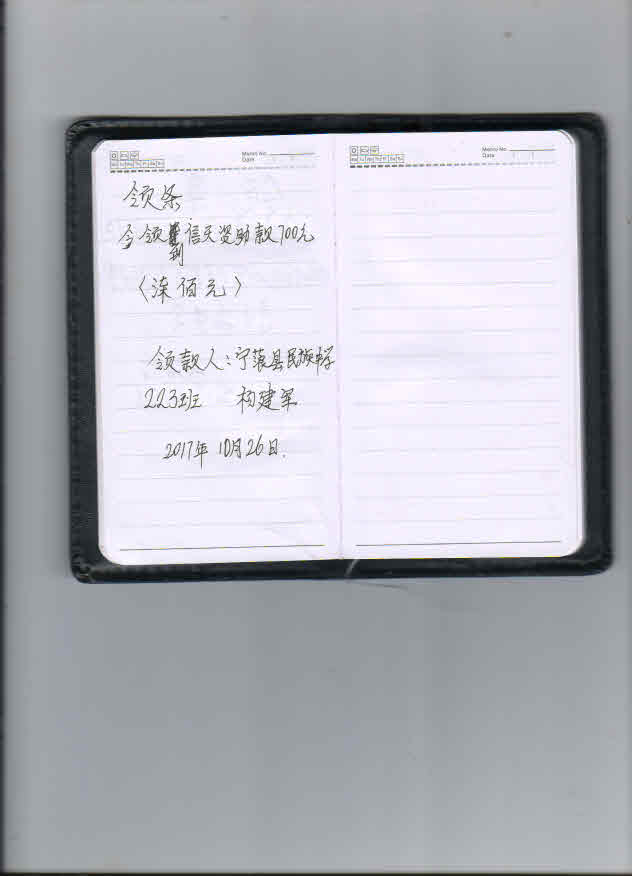 Memo No.
Date
领条
今领到信天资助款700元
〈柒佰元〉
领款人:宁蒗县民族中学
223班 杨建军
2017年10月26日.
Memo No.
Date